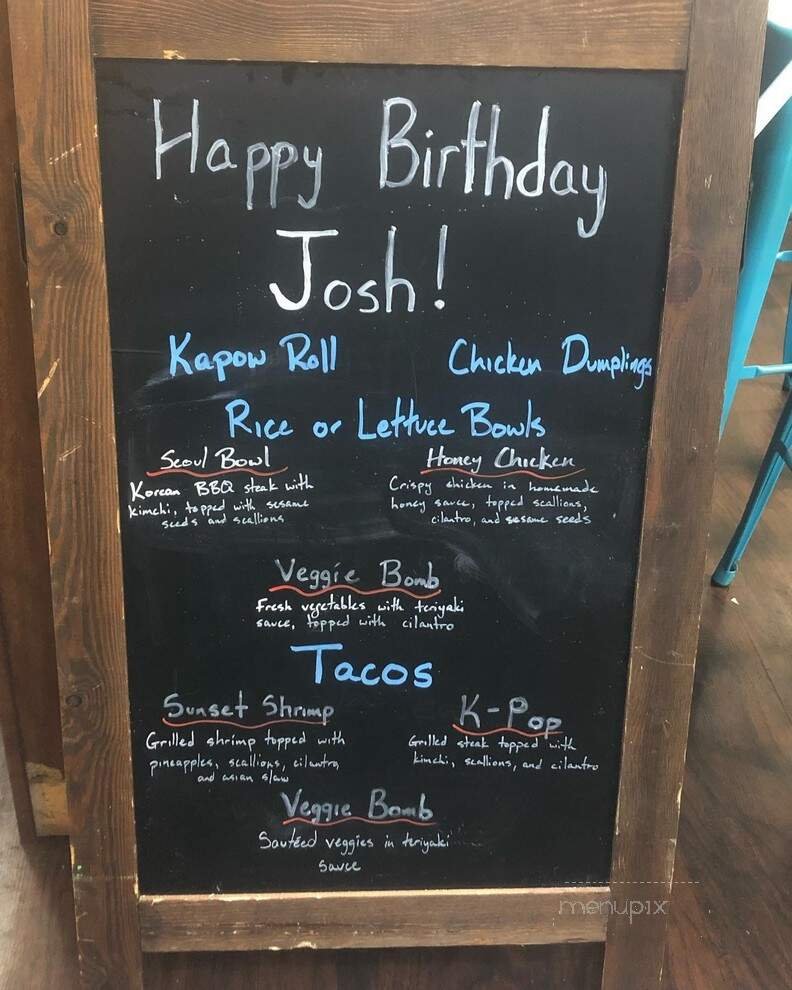 Happy Birthday
Josh!
Kapow Roll
Chicken Dumplings
Rice or Lettuce Bowls
Seoul Bowl
Korean BBQ steak with
kimchi, topped with sesame
seeds and scallions
Honey Chicken
Crispy chicken in homemade
honey sauce, topped scallions,
cilantro, and sesame seeds
Veggie Bomb
Fresh vegetables with teriyaki
sauce, topped with cilantro
Tacos
Sunset Shrimp
Grilled shrimp topped with
pineapples, scallions, cilantro,
and asian slaw
K-Pop
Grilled steak topped with
kimchi, scallions, and cilantro
Veggie Bomb
Sautéed veggies in teriyaki
sauce
menupix